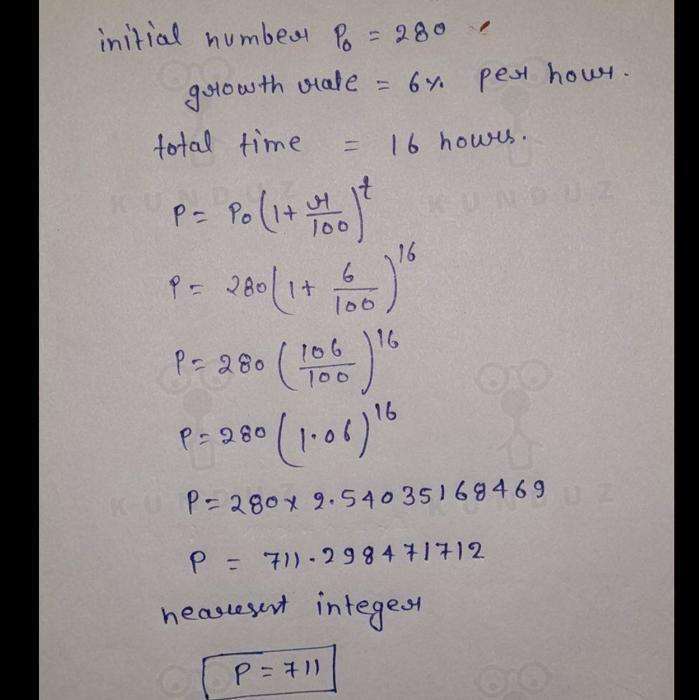 initial number P₀ = 280
growth rate = 6% per hour.
total time = 16 hours.
P = P₀(1 + r/100)^t
P = 280(1 + 6/100)^16
P = 280(106/100)^16
P = 280(1.06)^16
P = 280 x 2.54035168469
P = 711.298471712
nearesest integer
P = 711
KUNDUZ
KUNDUZ
KUNDUZ
KUNDUZ